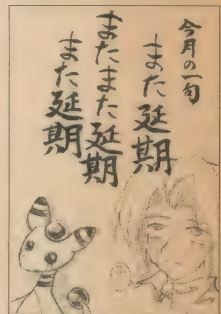 今月の一句
また延期
またまた延期
また延期